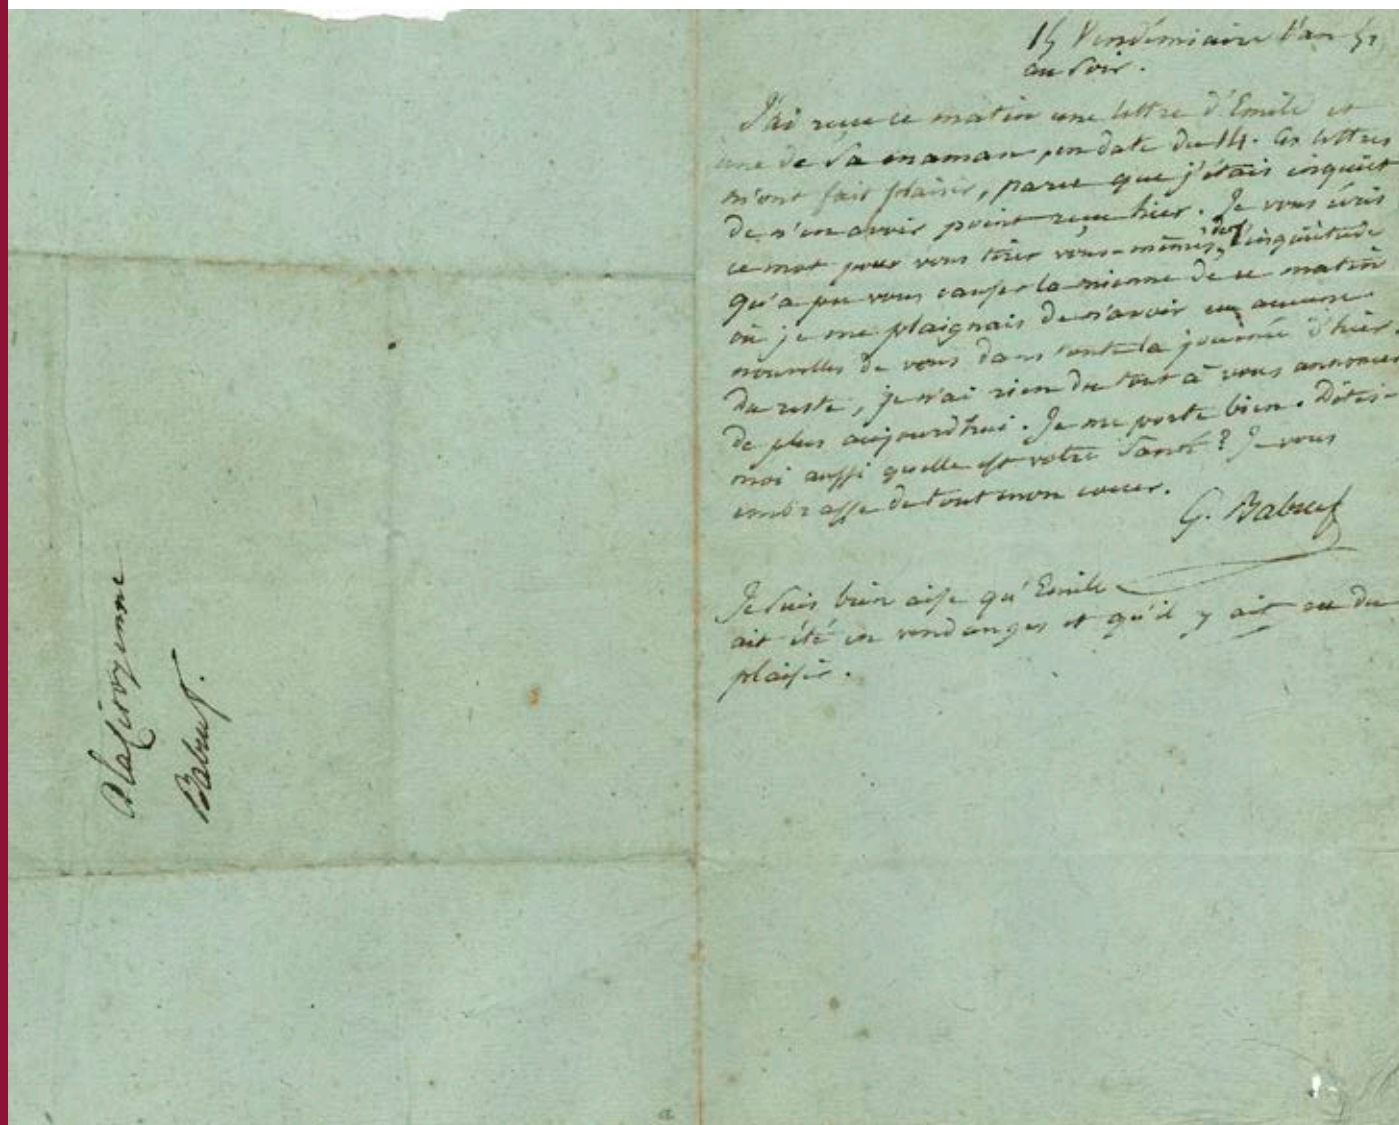 15 Vendémiaire l'an
au soir.
J'ai reçu ce matin une lettre d'Emile et
une de sa maman en date du 14. Ces lettres
m'ont fait plaisir, parce que j'étais inquiet
de n'en avoir point reçu hier. Je vous écris
ce mot pour vous tirer vous-mêmes de l'inquiétude
qu'a pu vous causer la mienne de ce matin
où je me plaignais de n'avoir eu aucune
nouvelles de vous dans toute la journée d'hier.
Du reste, je n'ai rien du tout à vous annoncer
de plus aujourd'hui. Je me porte bien. Dites-
moi aussi quelle est votre santé? Je vous
embrasse de tout mon coeur.
G. Babeuf
Je suis bien aise qu'Emile
ait été en vendanges et qu'il y ait eu du
plaisir.
A la Citoyenne
Babeuf.